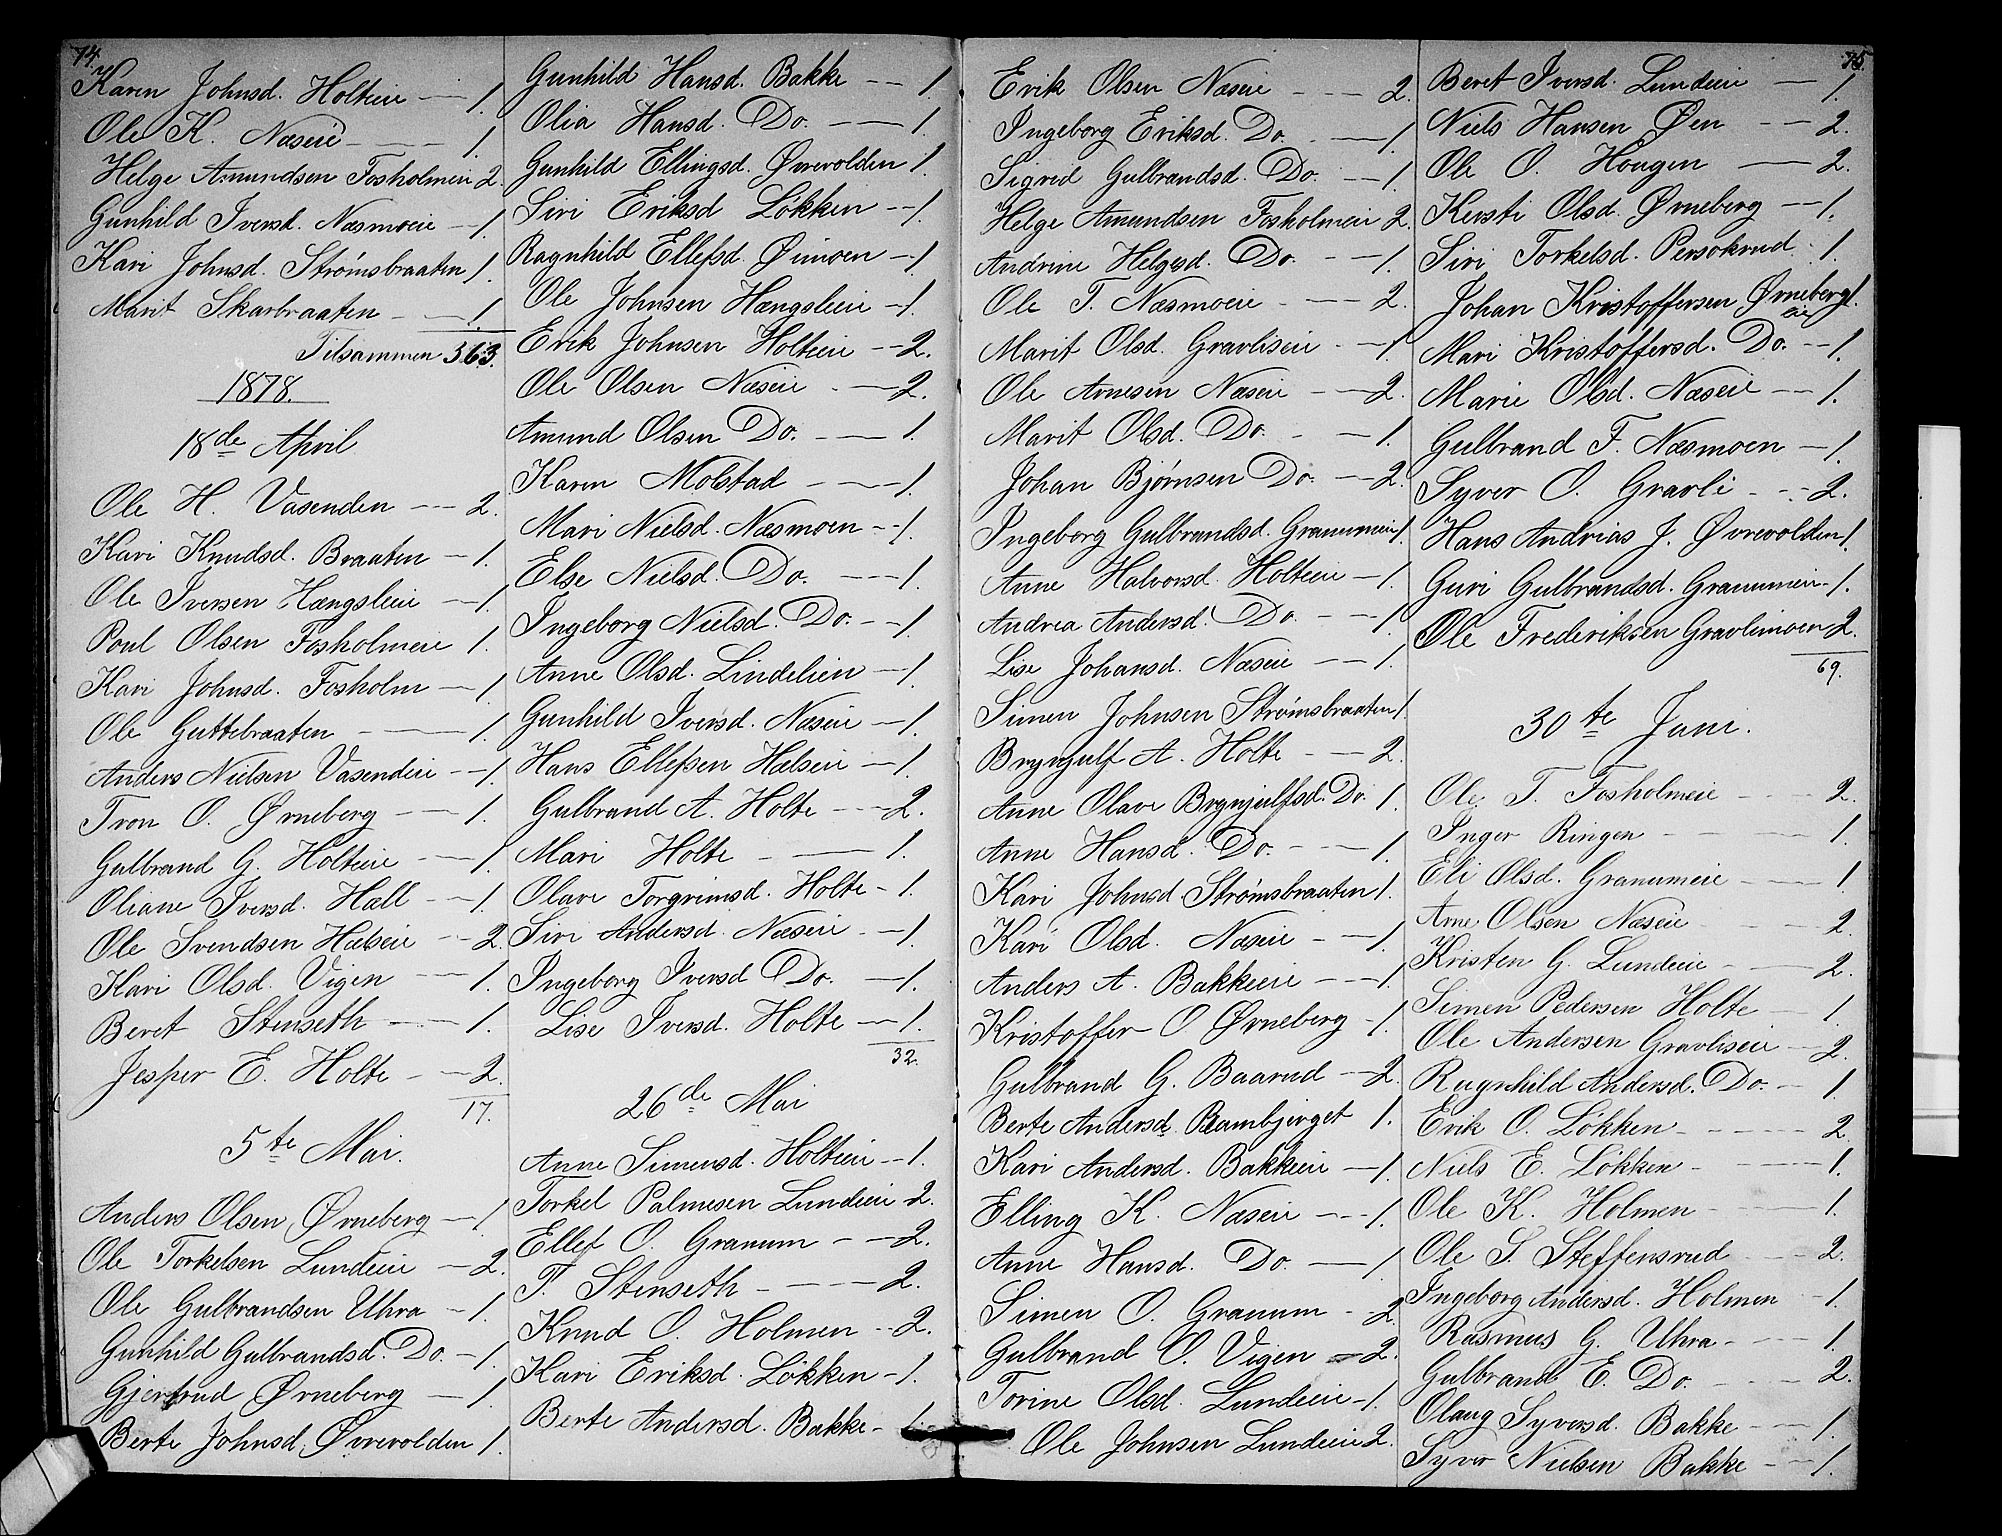 74.
Karen Johnsd. Holteie — 1.
Ole K. Næseie - — - 1.
Helge Amundsen Fosholmeie 2.
Gunhild Iversd. Næsmoeie — 1.
Kari Johnsd. Strømsbraaten 1.
Marit Skarbraaten - — 1.
Tilsammen 363.
1878.
18de April
Ole H. Vasenden — 2.
Kari Knudsd. Braaten — 1.
Ole Iversen Hængsleie — 1.
Poul Olsen Fosholmeie 1.
Kari Johnsd. Fosholm — 1.
Ole Guttebraaten — 1.
Anders Nielsen Vasendeie — 1.
Tron O. Ørneberg — 1.
Gulbrand G. Holteie — 1.
Oliane Iversd. Hall — 1.
Ole Svendsen Hælseie — 2.
Kari Olsd. Vigen — 1.
Beret Stenseth — 1.
Jesper E. Holte - — 2.
17.
5te Mai.
Anders Olsen Ørneberg — 1.
Ole Torkelsen Lundeie — 2.
Ole Gulbrandsen Uhra — 1.
Gunhild Gulbrandsd. Do. — 1.
Gjertrud Ørneberg — 1.
Berte Johnsd. Øvrevolden 1.
Gunhild Hansd. Bakke — 1.
Olia Hansd. Do. — 1.
Gunhild Ellingsd. Øvrevolden 1.
Siri Eriksd Løkken — 1.
Ragnhild Ellefsd. Øimoen — 1.
Ole Johnsen Hængsleie — 1.
Erik Johnsen Holteie — 2.
Ole Olsen Næseie - — 2.
Amund Olsen Do. - — 1.
Karen Molstad - — 1.
Mari Nielsd. Næsmoen - - 1.
Else Nielsd. Do. — 1.
Ingeborg Nielsd. Do. — 1.
Anne Olsd. Lindelien — 1.
Gunhild Iversd. Næseie — 1.
Hans Ellefsen Hælseie — 1.
Gulbrand A. Holte — 2.
Mari Holte - — 1.
Olave Torgrimsd. Holte - 1.
Siri Andersd. Næseie — 1.
Ingeborg Iversd Do. — 1.
Lise Iversd. Holte — 1.
32.
26de Mai
Anne Simensd. Holteie — 1.
Torkel Palmesen Lundeie 2.
Ellef O. Granum — 2.
T. Stenseth - — 2.
Knud O. Holmen - - 2.
Kari Eriksd. Løkken - 1.
Berte Andersd. Bakke - 1.
75.
Erik Olsen Næseie - — 2.
Ingeborg Eriksd. Do. — 1.
Sigrid Gulbrandsd. Do. — 1.
Helge Amundsen Fosholmeie 2.
Andrine Helgesd. Do. — 1.
Ole T. Næsmoeie - — 2.
Marit Olsd. Gravliseie — 1.
Ole Arnesen Næseie — 2.
Marit Olsd. Do. - — 1.
Johan Bjørnsen Do. — 2.
Ingeborg Gulbrandsd. Granumeie 1.
Anne Halvorsd. Holteie — 1.
Andrea Andersd. Do. — 1.
Lise Johansd. Næseie — 1.
Simen Johnsen Strømsbraaten 1.
Brynjulf A. Holte — 2.
Anne Olave Brynjulfsd. Do. 1.
Anne Hansd. Do. — 1.
Kari Johnsd. Strømsbraaten 1.
Kari Olsd. Næseie — 1.
Anders A. Bakkeeie — 1.
Kristoffer O Ørneberg - 1.
Gulbrand G. Baarud — 2.
Berte Andersd. Rambjerget 1.
Kari Andersd. Bakkeeie — 1.
Elling K. Næseie — 1.
Anne Hansd. Do. — 1.
Simen O. Granum - - 2.
Gulbrand O. Vigen — 2.
Torine Olsd. Lundeeie - 1.
Ole Johnsen Lundeeie 2.
Beret Iversd. Lundeie — 1.
Niels Hansen Øen — 2.
Ole O. Hougen — 2.
Kersti Olsd. Ørneberg — 1.
Siri Torkelsd. Persokrud - 1.
Johan Kristoffersen Ørneberg 1.
eie
Mari Kristoffersd. Do. — 1.
Marie Olsd. Næseie — 1.
Gulbrand F. Næsmoen — 1.
Syver O. Gravli - - 2.
Hans Andrias J. Øvrevolden 1.
Guri Gulbrandsd. Granumeie - 1.
Ole Frederiksen Gravlimoen 2.
69.
30te Juni.
Ole T. Fosholmeie — 2.
Inger Ringen - — 1.
Eli Olsd. Granumeie — 1.
Arne Olsen Næseie - — 2.
Kristen G. Lundeeie - — 2.
Simen Pedersen Holte — 1.
Ole Andersen Gravliseie — 2.
Ragnhild Andersd. Do. — 1.
Erik O. Løkken - — 2.
Niels E. Løkken - — 1.
Ole K. Holmen - — 1.
Ole S. Steffensrud — 2.
Ingeborg Andersd. Holmen - 1.
Rasmus G. Uhra - — 1.
Gulbrand E. Do. — 2.
Olaug Syversd. Bakke — 1.
Syver Nielsen Bakke — 1.